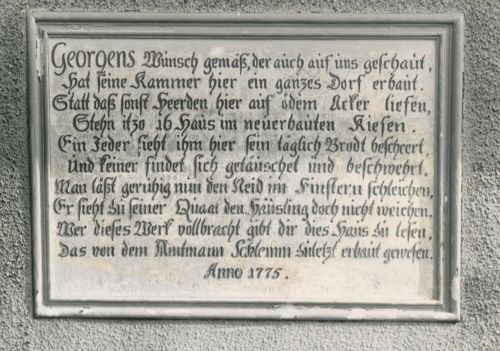 Georgens Wunsch gemäß, der auch auf uns geschaut,
Hat seine Kammer hier ein ganzes Dorf erbaut.
Statt daß sonst Heerden hier auf ödem Acker liefen,
Stehn itzo 16 Häus im neuerbauten Kiefen.
Ein Jeder sieht ihm hier sein täglich Brodt bescheert
Und keiner findet sich getäuschet und beschwehrt.
Man läßt geruhig nun den Neid im Finstern schleichen,
Er sieht zu seiner Quaal den Häusling doch nicht weichen.
Wer dieses Werk vollbracht gibt dir dies Haus zu lesen,
Das von dem Amtmann Schlemm zuletzt erbaut gewesen.
Anno 1775.